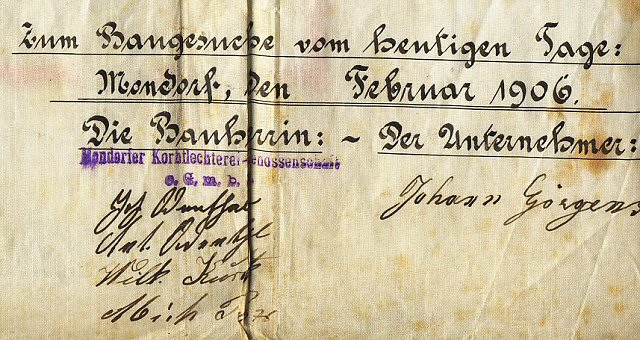 Zum Baugesuche vom heutigen Tage:
Mondorf, den Februar 1906.
Die Bauherrin: – Der Unternehmer:
Mondorfer Korbflechterei-Genossenschaft
e. G. m. b.
Johann Görgens
Wilh.
Mich